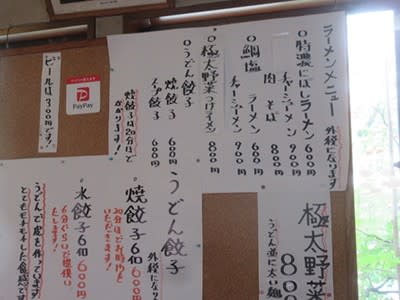 ラーメンメニュー 外税になります
○特濃にぼしラーメン 600円
チャーシューメン 900円
肉そば
○鯛塩ラーメン 600円
チャーシューメン 900円
○極太野菜つけラーメン 800円
○うどん餃子
焼餃子 600円
水餃子 600円
焼餃子は20分ほどかかります!
PayPay
ビールは300円です!
極太野菜
うどん並に太い麺
80
うどん餃子
外税になります
焼餃子6個 600円
20分ほどお時間を
いただきます!
水餃子6個 600円
6分ぐらいで提供い
たします!
うどんで皮を作っています
とてもモチモチした食感です